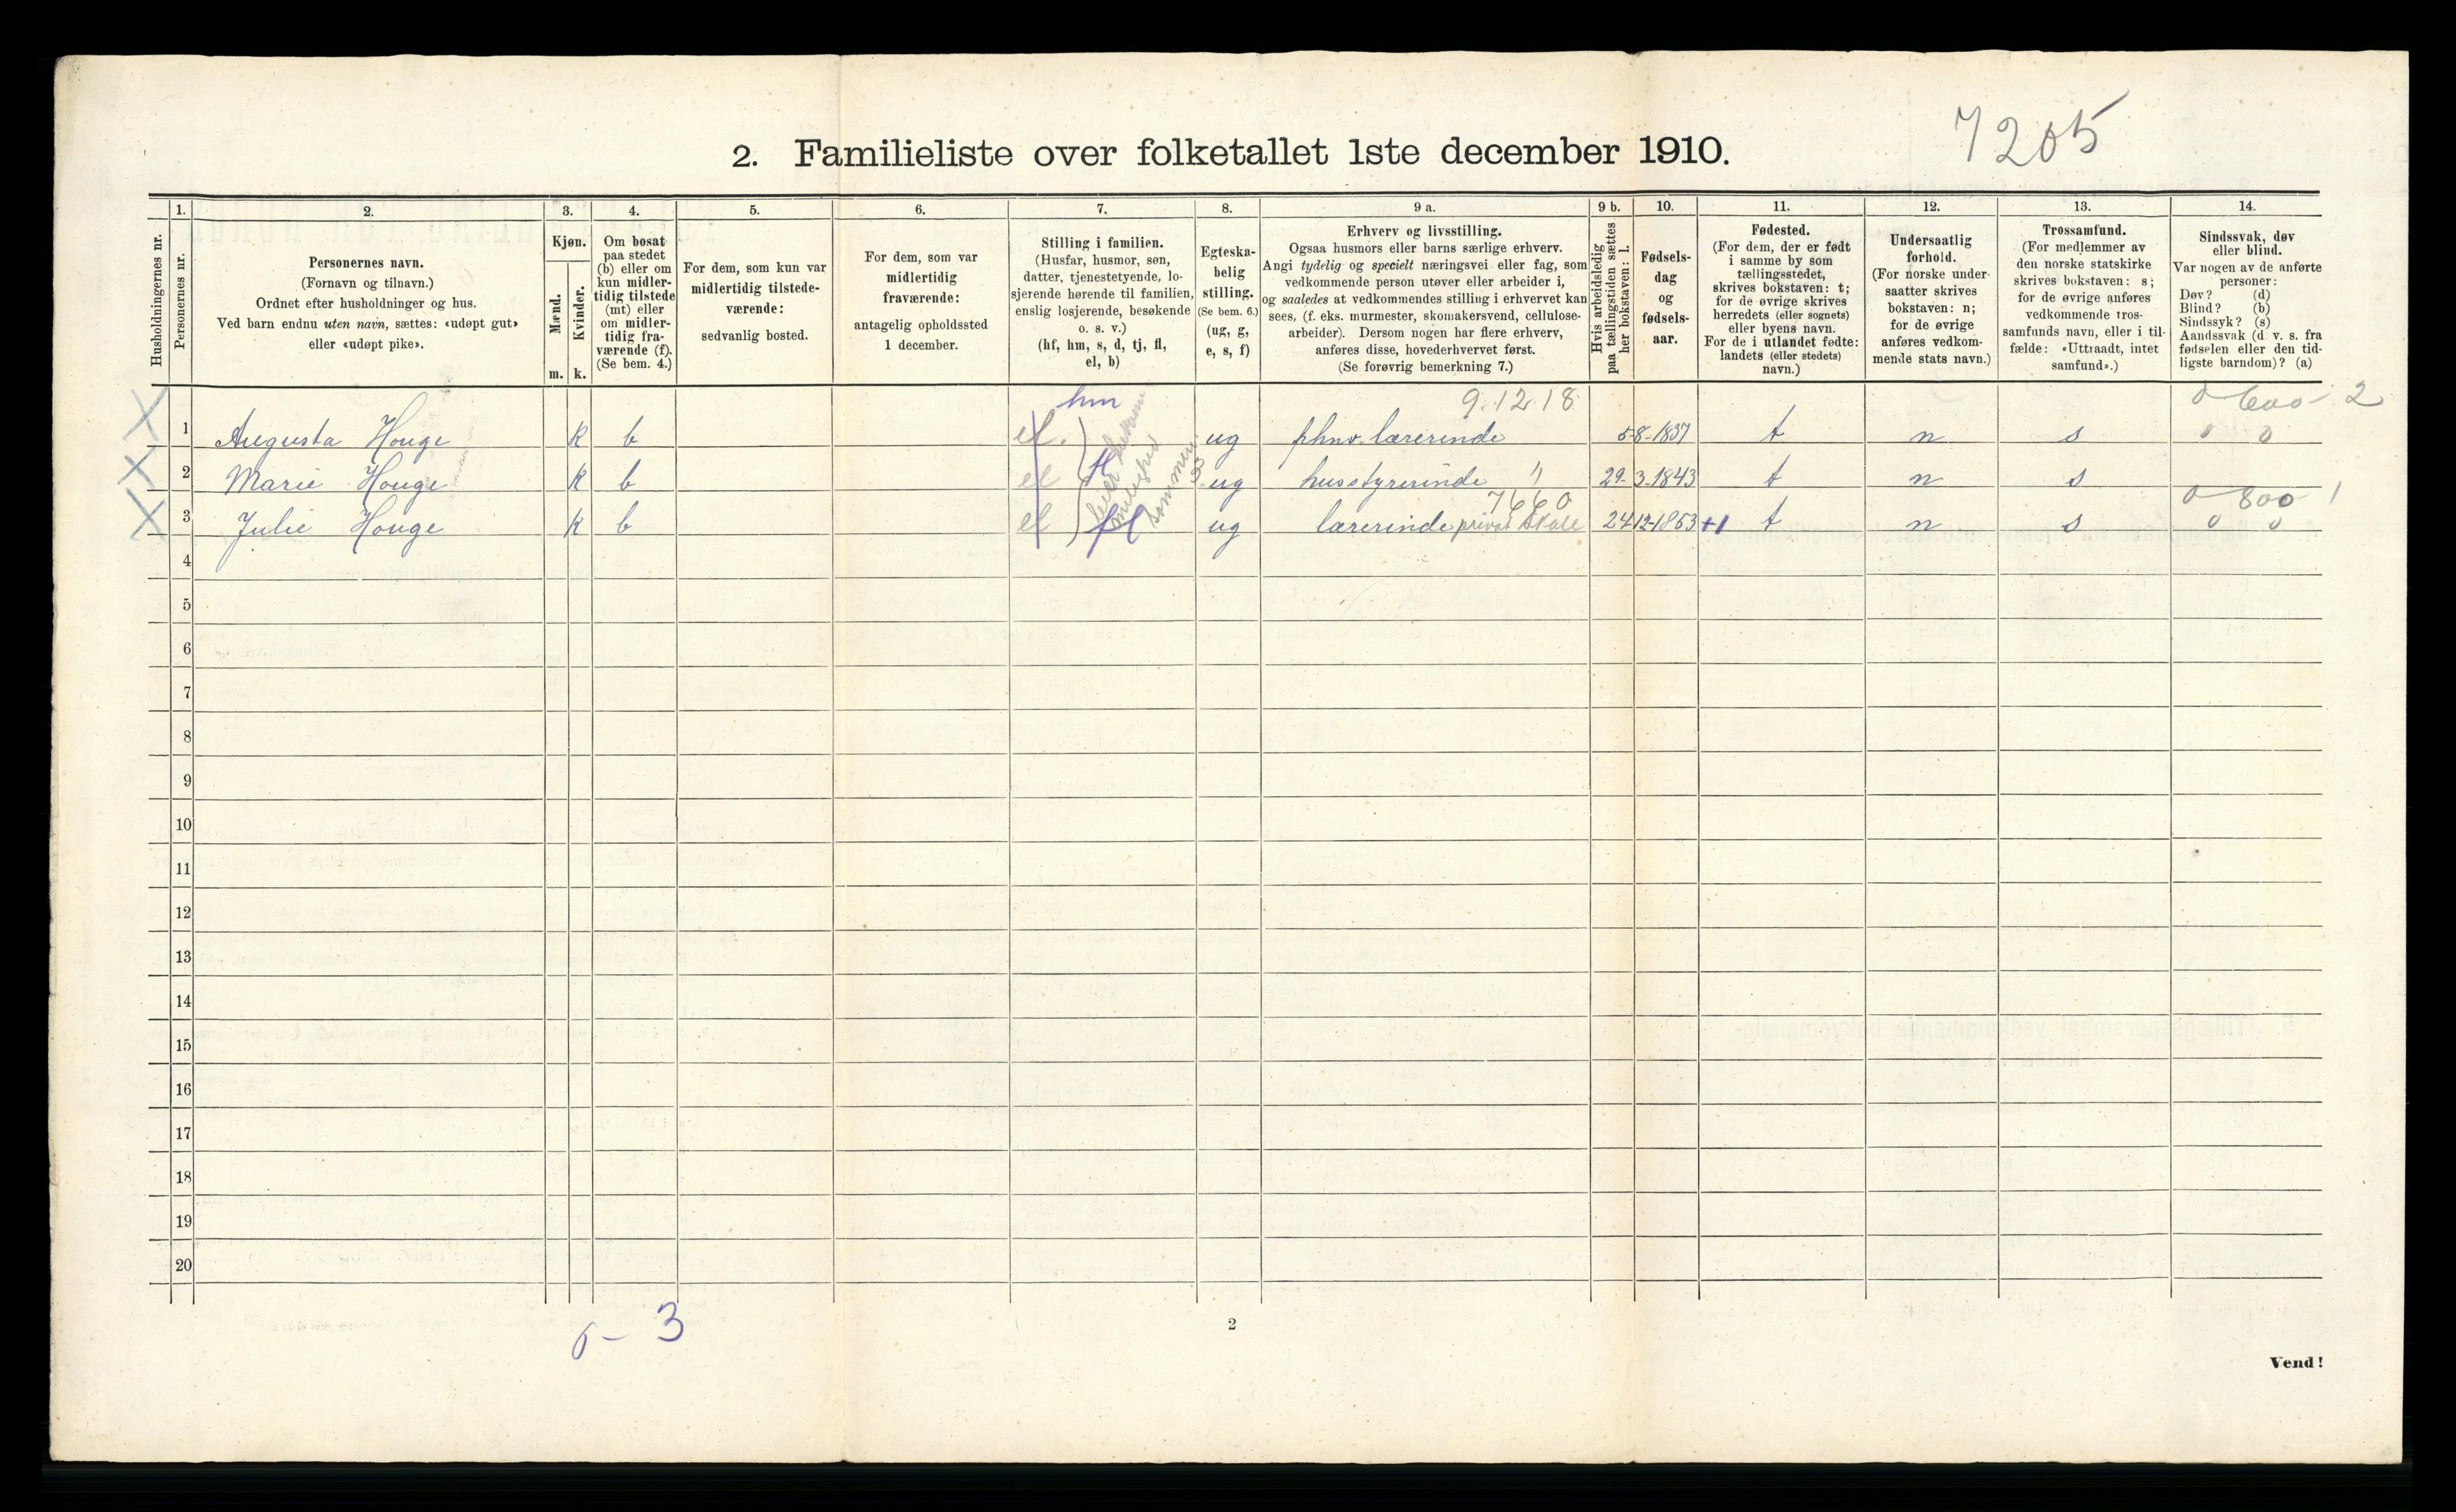 7205
2. Familieliste over folketallet 1ste december 1910.
Husholdningernes nr.
1. Personernes nr.
2. Personernes navn.
(Fornavn og tilnavn.)
Ordnet efter husholdninger og hus.
Ved barn endnu uten navn, sættes: «udøpt gut»
eller «udøpt pike».
3. Kjøn.
Mænd. m.
Kvinder. k.
4. Om bosat
paa stedet
(b) eller om
kun midler-
tidig tilstede
(mt) eller
om midler-
tidig fra-
værende (f).
(Se bem. 4.)
5. For dem, som kun var
midlertidig tilstede-
værende:
sedvanlig bosted.
6. For dem, som var
midlertidig
fraværende:
antagelig opholdssted
1 december.
7. Stilling i familien.
(Husfar, husmor, søn,
datter, tjenestetyende, lo-
sjerende hørende til familien,
enslig losjerende, besøkende
o. s. v.)
(hf, hm, s, d, tj, fl,
el, b)
8. Egteska-
belig
stilling.
(Se bem. 6.)
(ug, g,
e, s, f)
9 a. Erhverv og livsstilling.
Ogsaa husmors eller barns særlige erhverv.
Angi tydelig og specielt næringsvei eller fag, som
vedkommende person utøver eller arbeider i,
og saaledes at vedkommendes stilling i erhvervet kan
sees, (f. eks. murmester, skomakersvend, cellulose-
arbeider). Dersom nogen har flere erhverv,
anføres disse, hovederhvervet først.
(Se forøvrig bemerkning 7.)
9 b. Hvis arbeidsledig
paa tællingstiden sættes
her bokstaven: l.
10. Fødsels-
dag
og
fødsels-
aar.
11. Fødested.
(For dem, der er født
i samme by som
tællingsstedet,
skrives bokstaven: t;
for de øvrige skrives
herredets (eller sognets)
eller byens navn.
For de i utlandet fødte:
landets (eller stedets)
navn.)
12. Undersaatlig
forhold.
(For norske under-
saatter skrives
bokstaven: n;
for de øvrige
anføres vedkom-
mende stats navn.)
13. Trossamfund.
(For medlemmer av
den norske statskirke
skrives bokstaven: s;
for de øvrige anføres
vedkommende tros-
samfunds navn, eller i til-
fælde: «Uttraadt, intet
samfund».)
14. Sindssvak, døv
eller blind.
Var nogen av de anførte
personer:
Døv? (d)
Blind? (b)
Sindssyk? (s)
Aandssvak (d. v. s. fra
fødselen eller den tid-
ligste barndom)? (a)
hm 9.12.18 0 600 - 2
1 Augusta Houge k b el. ug lærerinde 5-8-1837 t n s 0 0
2 Marie Houge k b el fl ug husstyrerinde " 29-3-1843 t n s
7660 0 800 1
3 Julie Houge k b el fl ug lærerinde privat skole 24 12-1853 +1 t n s 0 0
4
5
6
7
8
9
10
11
12
13
14
15
16
17
18
19
20
0 - 3
2
Vend!